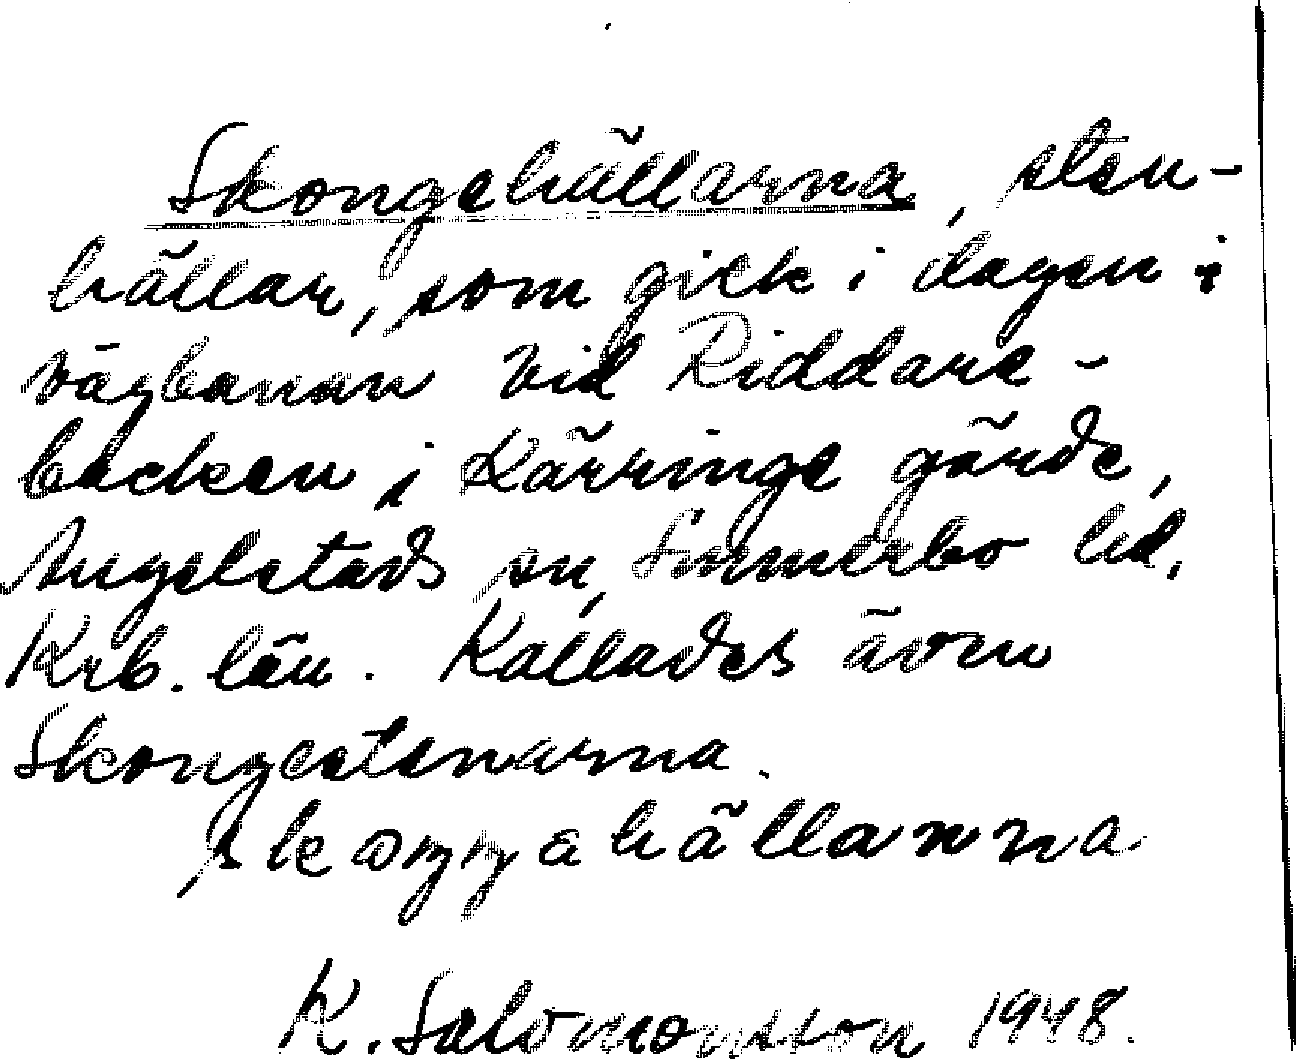 Skongehällarna, sten-
hällar, som gick i dagen i
vägbanan vid Riddare-
backen i Kärringe gärde,
Angelstads sn, Sunnerbo hd,
Krb. län. Kallades även
Skongestenarna.
skoŋŋahällarna
K. Salomonsson 1948.